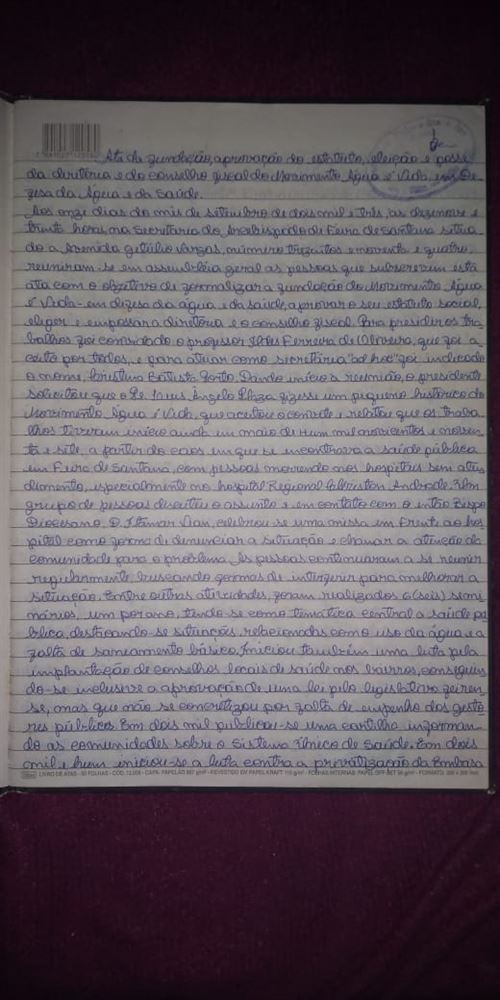 Ata da fundação, aprovação do estatuto, eleição e posse
da diretoria e do conselho fiscal do Movimento Água é Vida em De-
fesa da Água e da Saúde.
Aos onze dias do mês de setembro de dois mil e três, às dezenove e
trinta horas, na Secretaria do Arcebispado de Feira de Santana situa-
do a Avenida Getúlio Vargas, número trezentos e noventa e quatro,
reuniram-se em assembléia geral as pessoas que subscrevem esta
ata com o objetivo de formalizar a fundação do Movimento Água
é Vida - em defesa da água e da saúde, aprovar o seu estatuto social,
eleger e empossar a diretoria e o conselho fiscal. Para presidir os tra-
balhos foi convidado o professor Ildes Ferreira de Oliveira, que foi a-
ceito por todos, e para atuar como secretária "ad hoc" foi indicado
o nome, Cristina Batista Porto. Dando início a reunião, o presidente
solicitou que o Pe. Luis Ângelo Plaza fizesse um pequeno histórico do
Movimento Água é Vida, que aceitou o convite e relatou que os traba-
lhos tiveram início ainda em maio de hum mil novecentos e noven-
ta e sete, a partir do caos em que se encontrava a saúde pública
em Feira de Santana, com pessoas morrendo nos hospitais sem aten
dimento, especialmente no hospital Regional Clériston Andrade. Um
grupo de pessoas discutiu o assunto e em contato com o então Bispo
Diocesano. D. Itamar Vian, celebrou se uma missa em frente ao hos-
pital como forma de denunciar a situação e chamar a atenção da
comunidade para o problema. As pessoas continuaram a se reunir
regularmente, buscando formas de interferir para melhorar a
situação. Entre outras atividades, foram realizados 6 (seis) semi
nários, um por ano, tendo-se como temática central a saúde pú
blica, destacando-se situações relacionadas com o uso da água e a
falta de saneamento básico. Iniciou também uma luta pela
implantação de conselhos locais de saúde nos bairros, conseguin
do-se inclusive a aprovação de uma lei pelo legislativo feiren-
se, mas que não se concretizou por falta de empenho dos gesto
res públicos. Em dois mil publicou-se uma cartilha informan-
do as comunidades sobre o Sistema Único de Saúde. Em dois
mil e hum iniciou-se a luta contra a privatização da Embasa
LIVRO DE ATAS - 50 FOLHAS